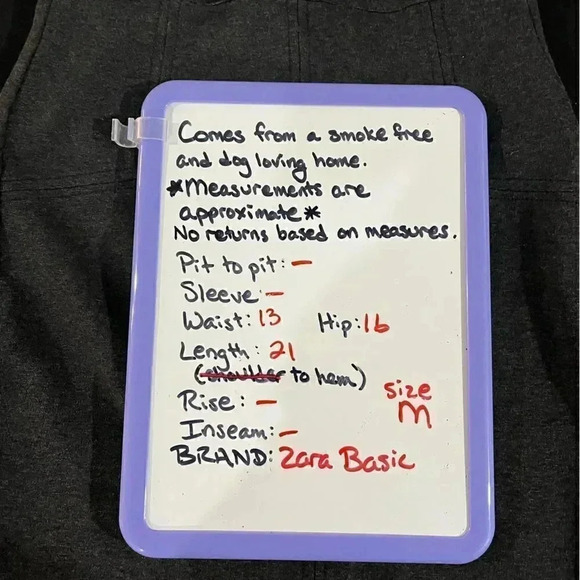 Comes from a smoke free
and dog loving home.
*Measurements are
approximate*
No returns based on measures.
Pit to pit: -
Sleeve: -
Waist: 13 Hip: 16
Length: 21
(shoulder to hem)
Rise: -
size
M
Inseam: -
BRAND: Zara Basic